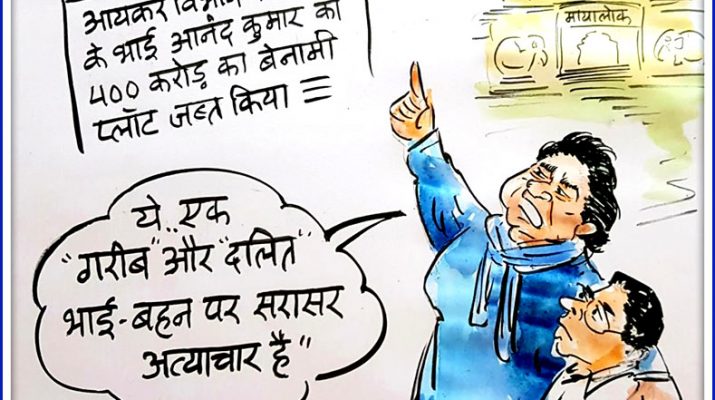 आयकर विभाग
के भाई आनंद कुमार का
400 करोड़ का बेनामी
प्लॉट जब्त किया
मायालोक
ये.. एक
"गरीब" और "दलित"
भाई-बहन पर सरासर
अत्याचार है"